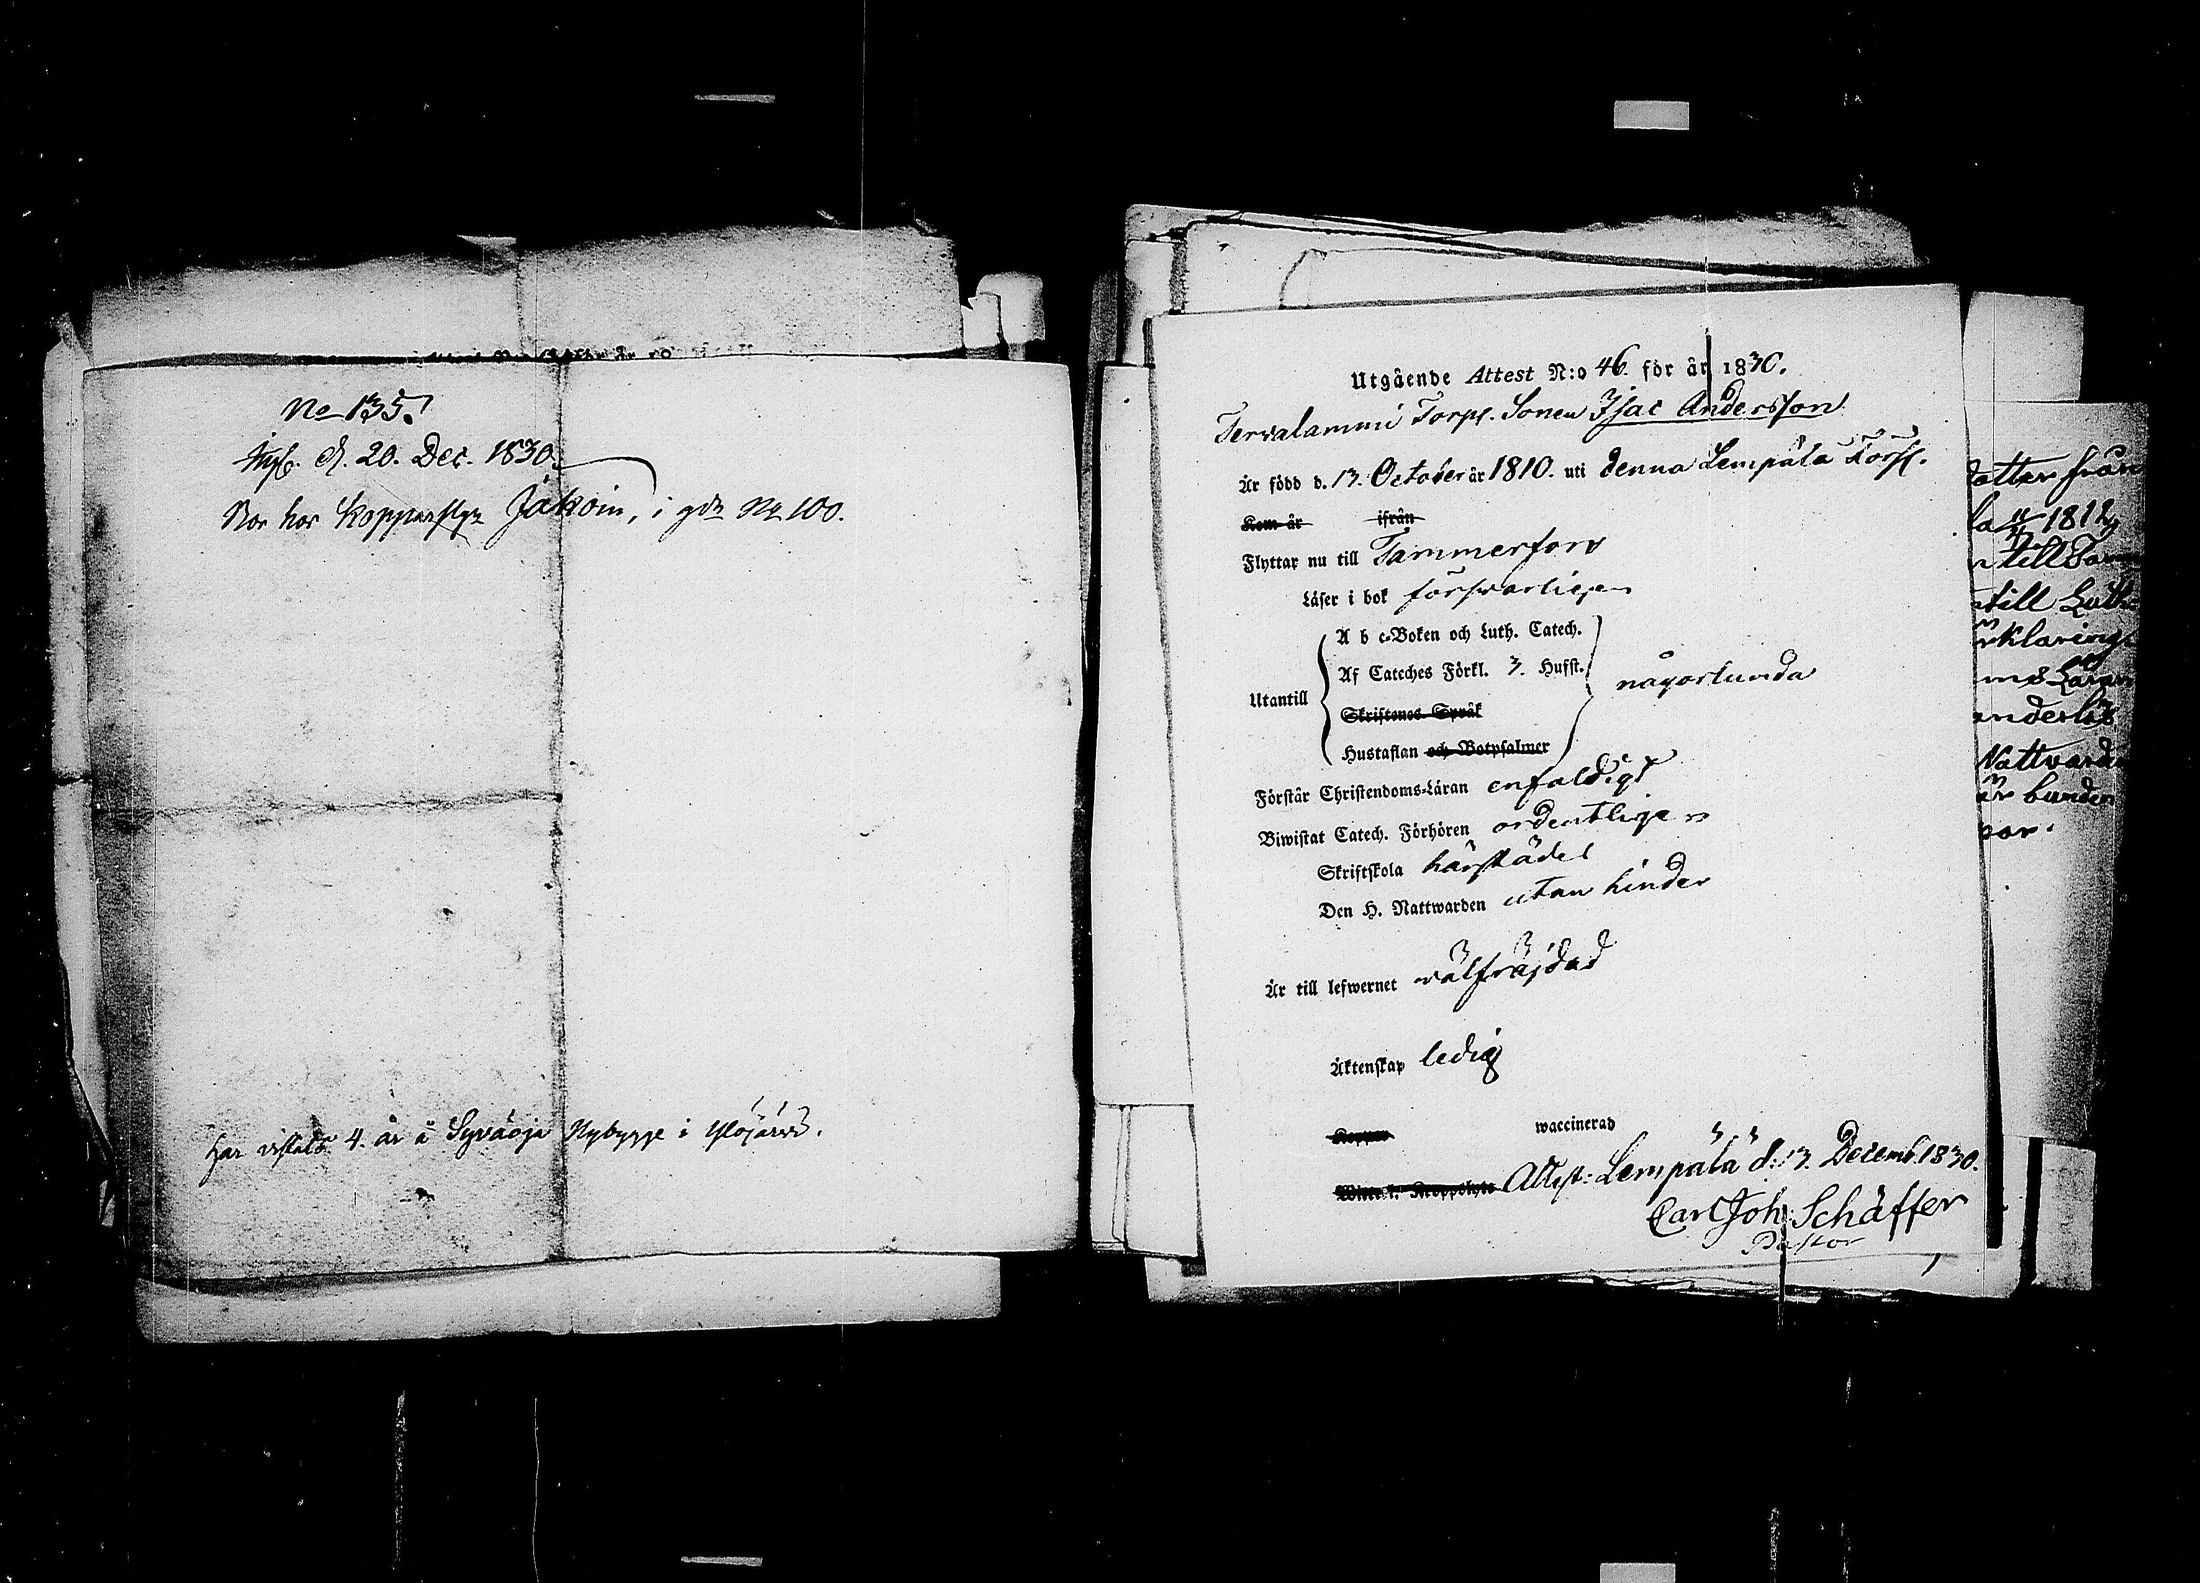 No 135.
Ingf. d. 20. Dec. 1830.
Bor hos Kopparslg. Jakoin, i gdn No 100.
Har vistats 4. år å Syväoja Nybygge i Ylöjärvi.
Utgående Attest N:o 46. för år 1830.
Tervalammi Torp. Sonen Isac Andersson
Är född d. 13. October år 1810. uti denna Lempälä Kors.
Kom år ifrån
Flyttar nu till Tammerfors
Läser i bok försvarligen
A b c-Boken och Luth. Catech.
Af Cateches Förkl. 3. Hufst.
någorlunda
Utantill
Skriftenes Språk
Hustaflan och Botpsalmer
Förstår Christendoms-Läran enfaldigt
Biwistat Catech. Förhören ordentligen
Skriftskola härstädes
Den H. Nattwarden utan hinder
Är till lefwernet välfräjdad
Äktenskap ledig
Koppor waccinerad
Attest: Lempälä d: 13. Decemb. 1830.
Carl Joh: Schäffer
Pastor
dotter från
la 11/11 1812,
n till Tam
till Luth
rklaring
ms Läran
anderlös
Nattvard
är bunden
par.